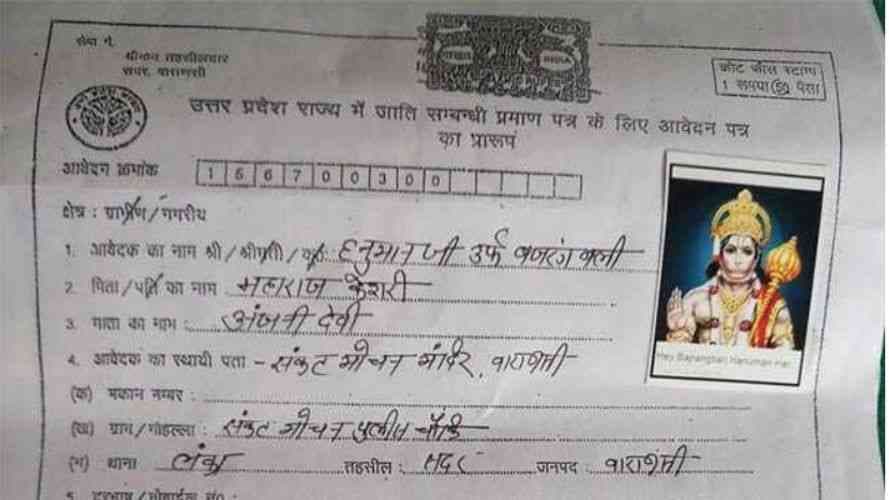 सेवा में,
श्रीमान तहसीलदार
सदर, वाराणसी
INDIA
कोर्ट फीस स्टाम्प
1 रूपया 50 पैसा
उत्तर प्रदेश राज्य में जाति सम्बन्धी प्रमाण पत्र के लिए आवेदन पत्र
का प्रारूप
आवेदन क्रमांक 1 5 6 7 0 0 3 0 0
क्षेत्र : ग्रामीण / नगरीय
1. आवेदक का नाम श्री / श्रीमती / कु0 हनुमान जी उर्फ बजरंग बली
2. पिता / पति का नाम महाराज केशरी
3. माता का नाम : अंजनी देवी
4. आवेदक का स्थायी पता - संकट मोचन मंदिर, वाराणसी
Hey Bajrangbali Hanuman Hai
(क) मकान नम्बर :
(ख) ग्राम / मोहल्ला : संकट मोचन पुलीस चौकी
(ग) थाना लंका तहसील : सदर जनपद : वाराणसी
5. दूरभाष / मोबाईल सं0 :